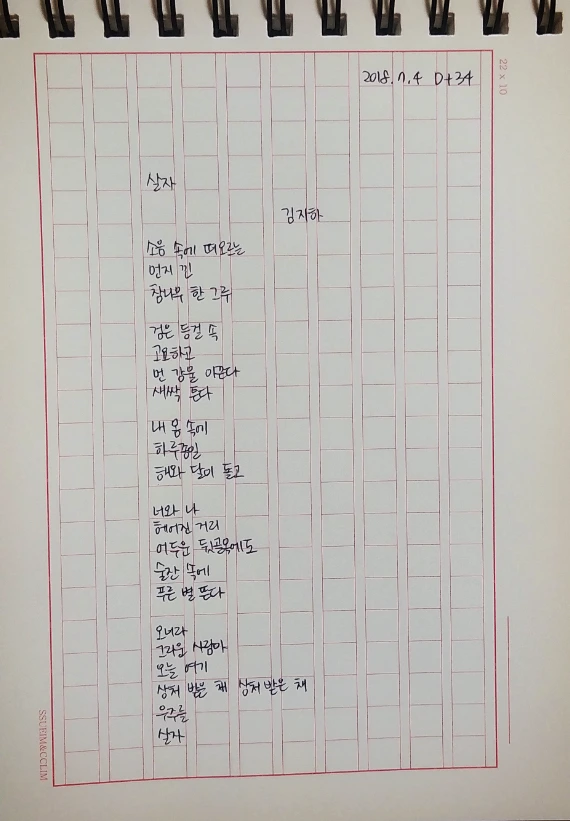 22 x 10
2018.7.4 D+34
살자
김지하
소음 속에 떠오르는
먼지 낀
참나무 한 그루
검은 등걸 속
고요하고
먼 강물 아픈다
새싹 튼다
내 몸 속에
하루종일
해와 달이 돌고
너와 나
헤어진 거리
어두운 뒷골목에도
술잔 속에
푸른 별 뜬다
오너라
그리운 사람아
오늘 여기
상처 받은 채 상처 받은 채
우주를
살자
SSUKIM&CCLIM